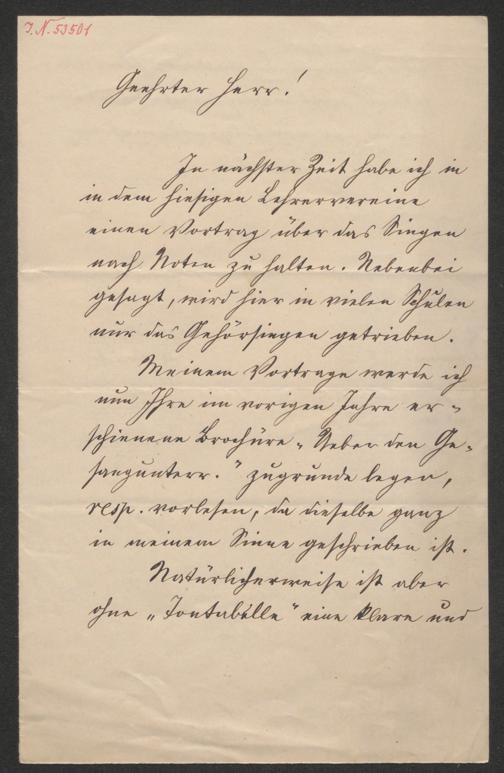 J.N. 53501
Geehrter Herr!
In nächster Zeit habe ich in
in dem hiesigen Lehrervereine
einen Vortrag über das Singen
nach Noten zu halten. Nebenbei
gesagt, wird hier in vielen Schulen
nur das Gehörsingen getrieben.
Meinem Vortrage werde ich
nun Ihre im vorigen Jahre er-
schienene Brochüre „Ueber den Ge-
sangunterr.“ zugrunde legen,
resp. vorlesen, da dieselbe ganz
in meinem Sinne geschrieben ist.
Natürlicherweise ist aber
ohne „Tontabelle“ eine klare und